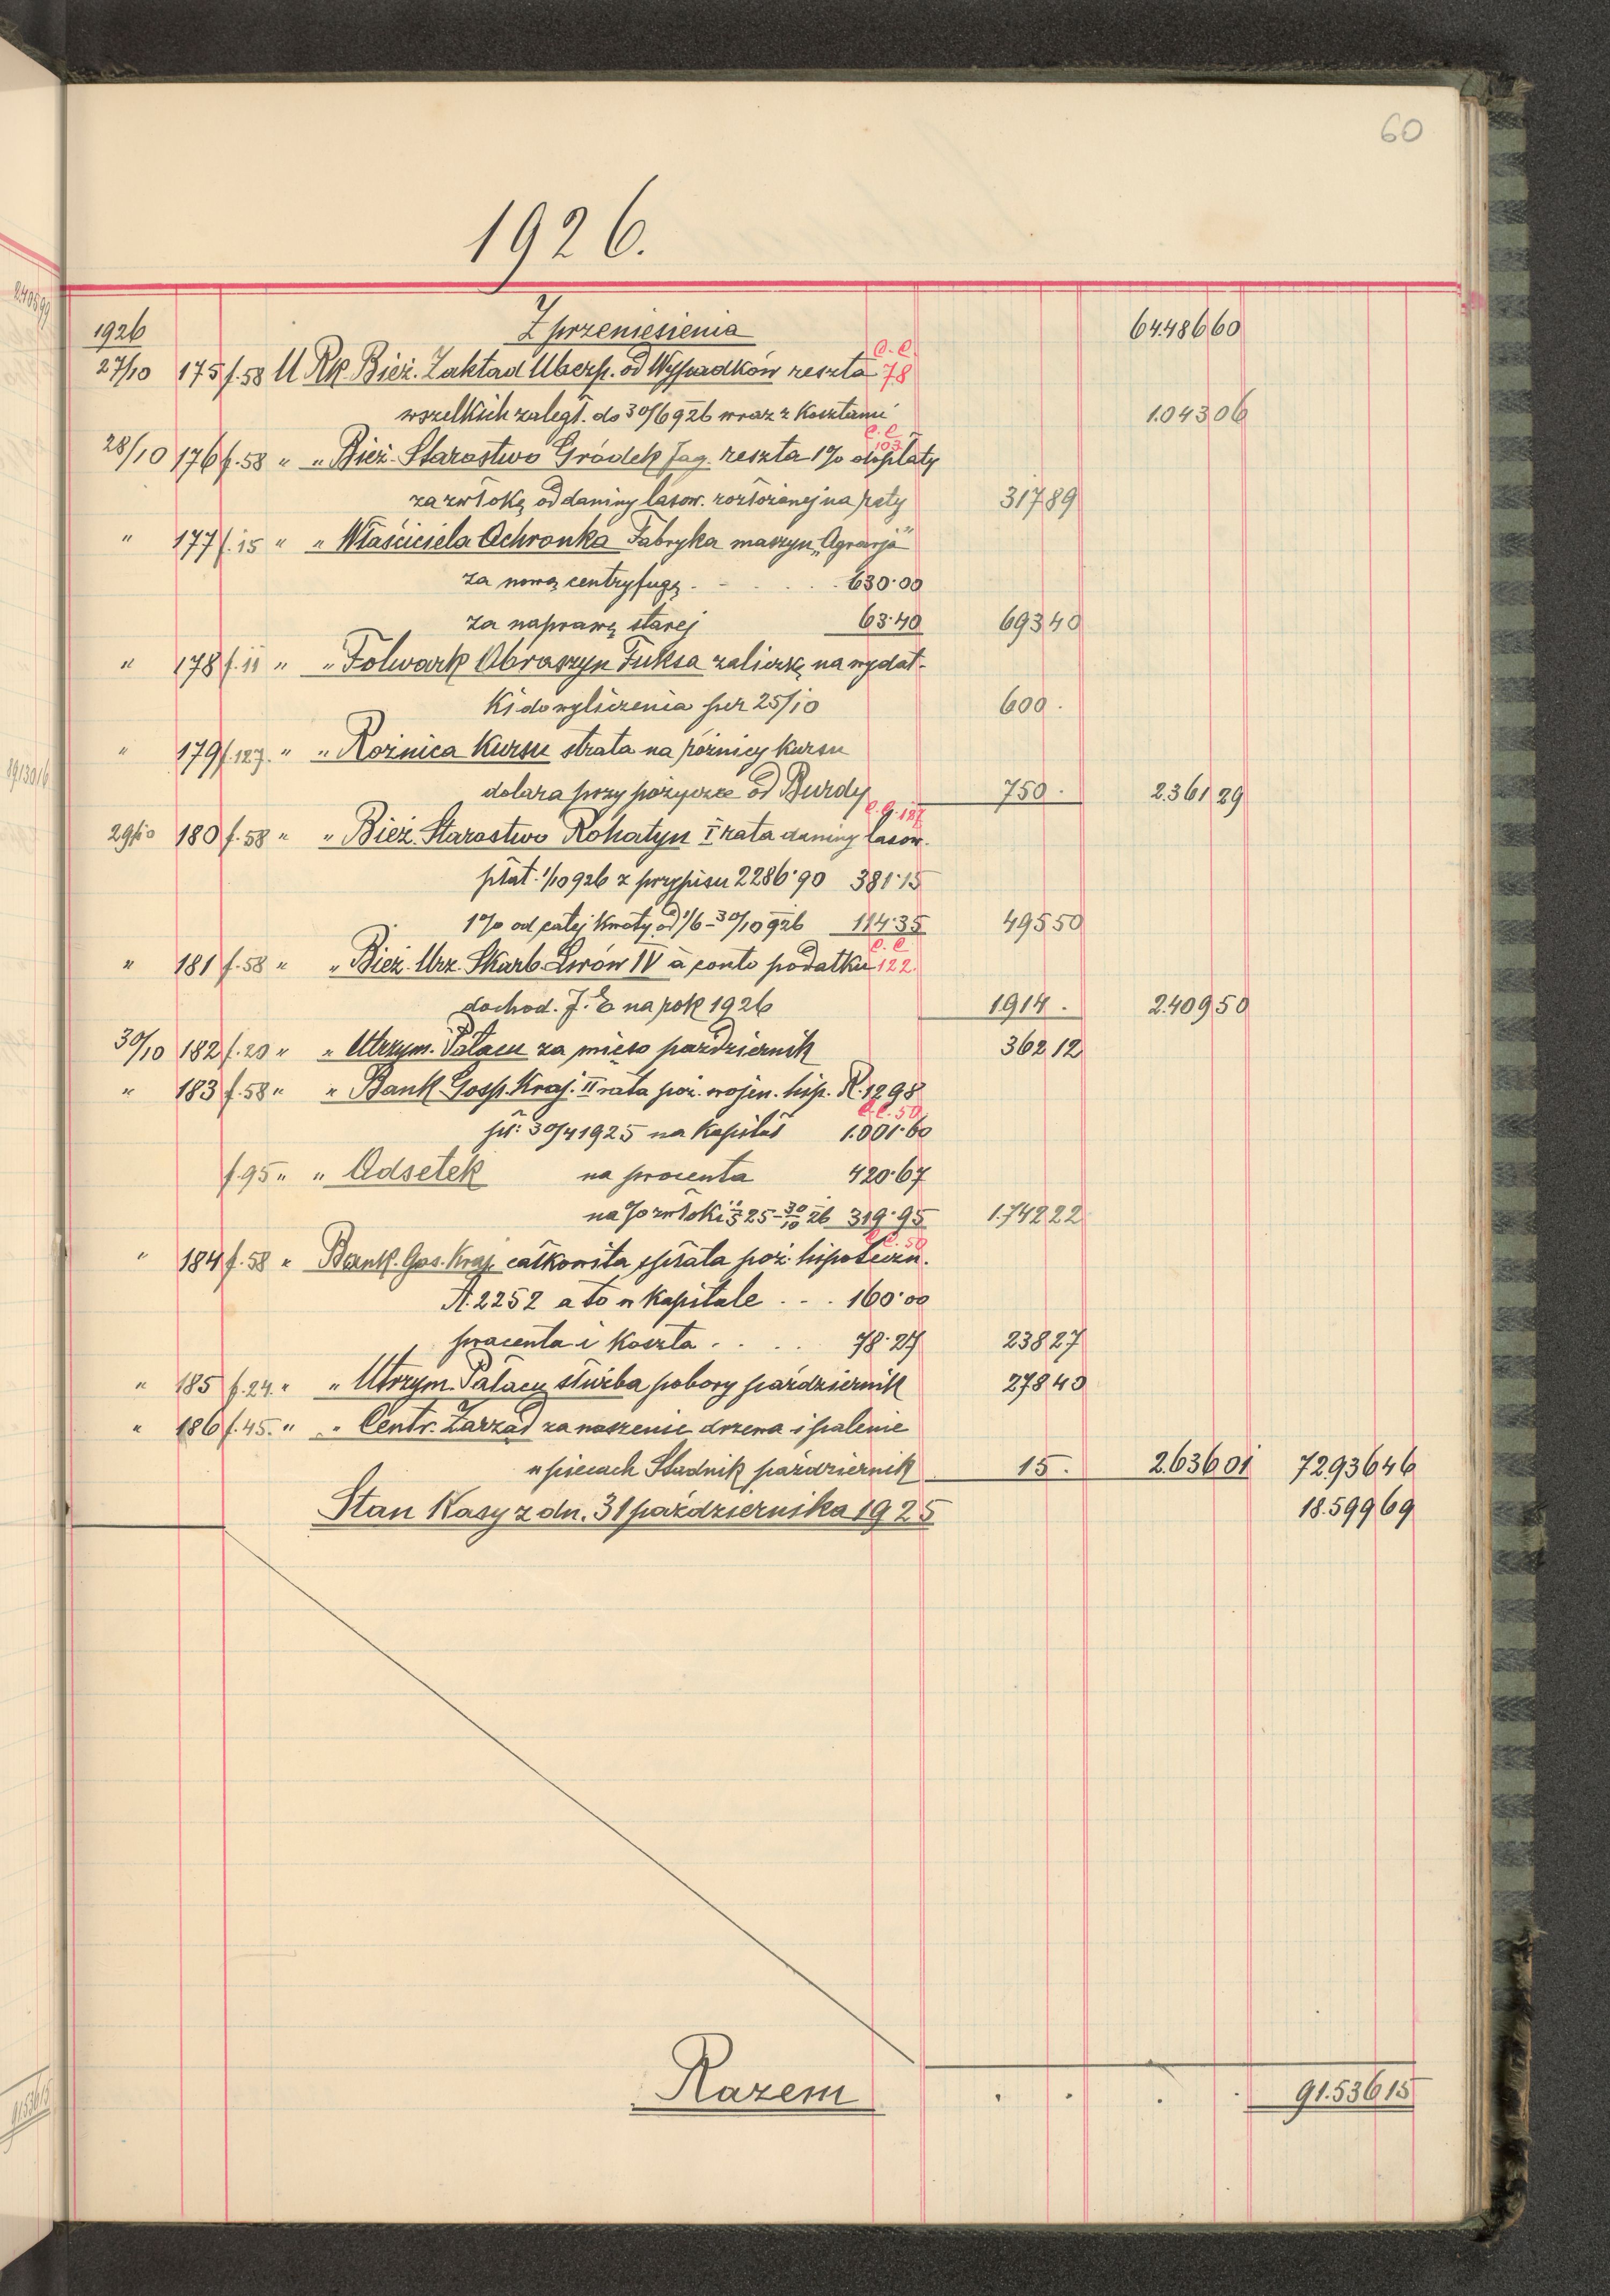 60
1926.
1926 Z przeniesienia 64.486 60
C. C.
27/10 175 f. 58 U Rk. Bież. Zakład Ubezp. od Wypadków reszta 78
wszelkich zaległ. do 30/6 926 wraz z kosztami 1.043 06
C. C. 103
28/10 176 f. 58 " " Bież. Starostwo Gródek Jag. reszta 1% dopłaty
za zwłokę od daniny lasow. rozłożonej na raty 317 89
" 177 f. 15 " " Właściciela Ochronka Fabryka maszyn „Agraria"
za nową centryfugę . - . . . . 630·00
za naprawę starej 63·40 693 40
" 178 f. 11 " " Folwark Obraszyn Fuksa zaliczkę na wydat-
ki do wyliczenia per 25/10 600 .
" 179 f. 127. " " Rożnica Kursu strata na różnicy kursu
dolara przy pożyczce od Burdy 750 . 2.361 29
C. C. 187
29/10 180 f. 58 " " Bież. Starostwo Rohatyn I rata daniny lasow.
płat. 1/10 926 z przypisu 2286·90 381·15
1% od całej kwoty od 1/6 - 30/10 926 114·35 495 50
C. C.
" 181 f. 58 " " Bież. Urz. Skarb. Lwów IV à conto podatku 122
dochod. J. E na rok 1926 1914 . 2.409 50
30/10 182 f. 20 " " Utrzym. Pałacu za mięso październik 362 12
" 183 f. 58 " " Bank Gosp. Kraj. II rata poż. wojen. hip. R. 1298
C. C. 50
pł: 30/4 1925 na kapitał 1.001·60
f. 95 " " Odsetek na procenta 420·67
na % zwłoki 1/5 25 - 30/10 26 319·95 1.742 22
C. C. 50
" 184 f. 58 " Bank. Gos. Kraj. całkowita spłata poż. hipoteczn.
A. 2252 a to w kapitale . - . 160·00
procenta i koszta . . . . 78·27 238 27
" 185 f. 24. " " Utrzym. Pałacu służba pobory październik 278 40
" 186 f. 45. " " Centr. Zarząd za noszenie drzewa i palenie
w piecach Studnik październik 15 . 2.636 01 72.936 46
Stan Kasy z dn. 31 października 1925 18.599 69
Razem . . . . 91.536 15